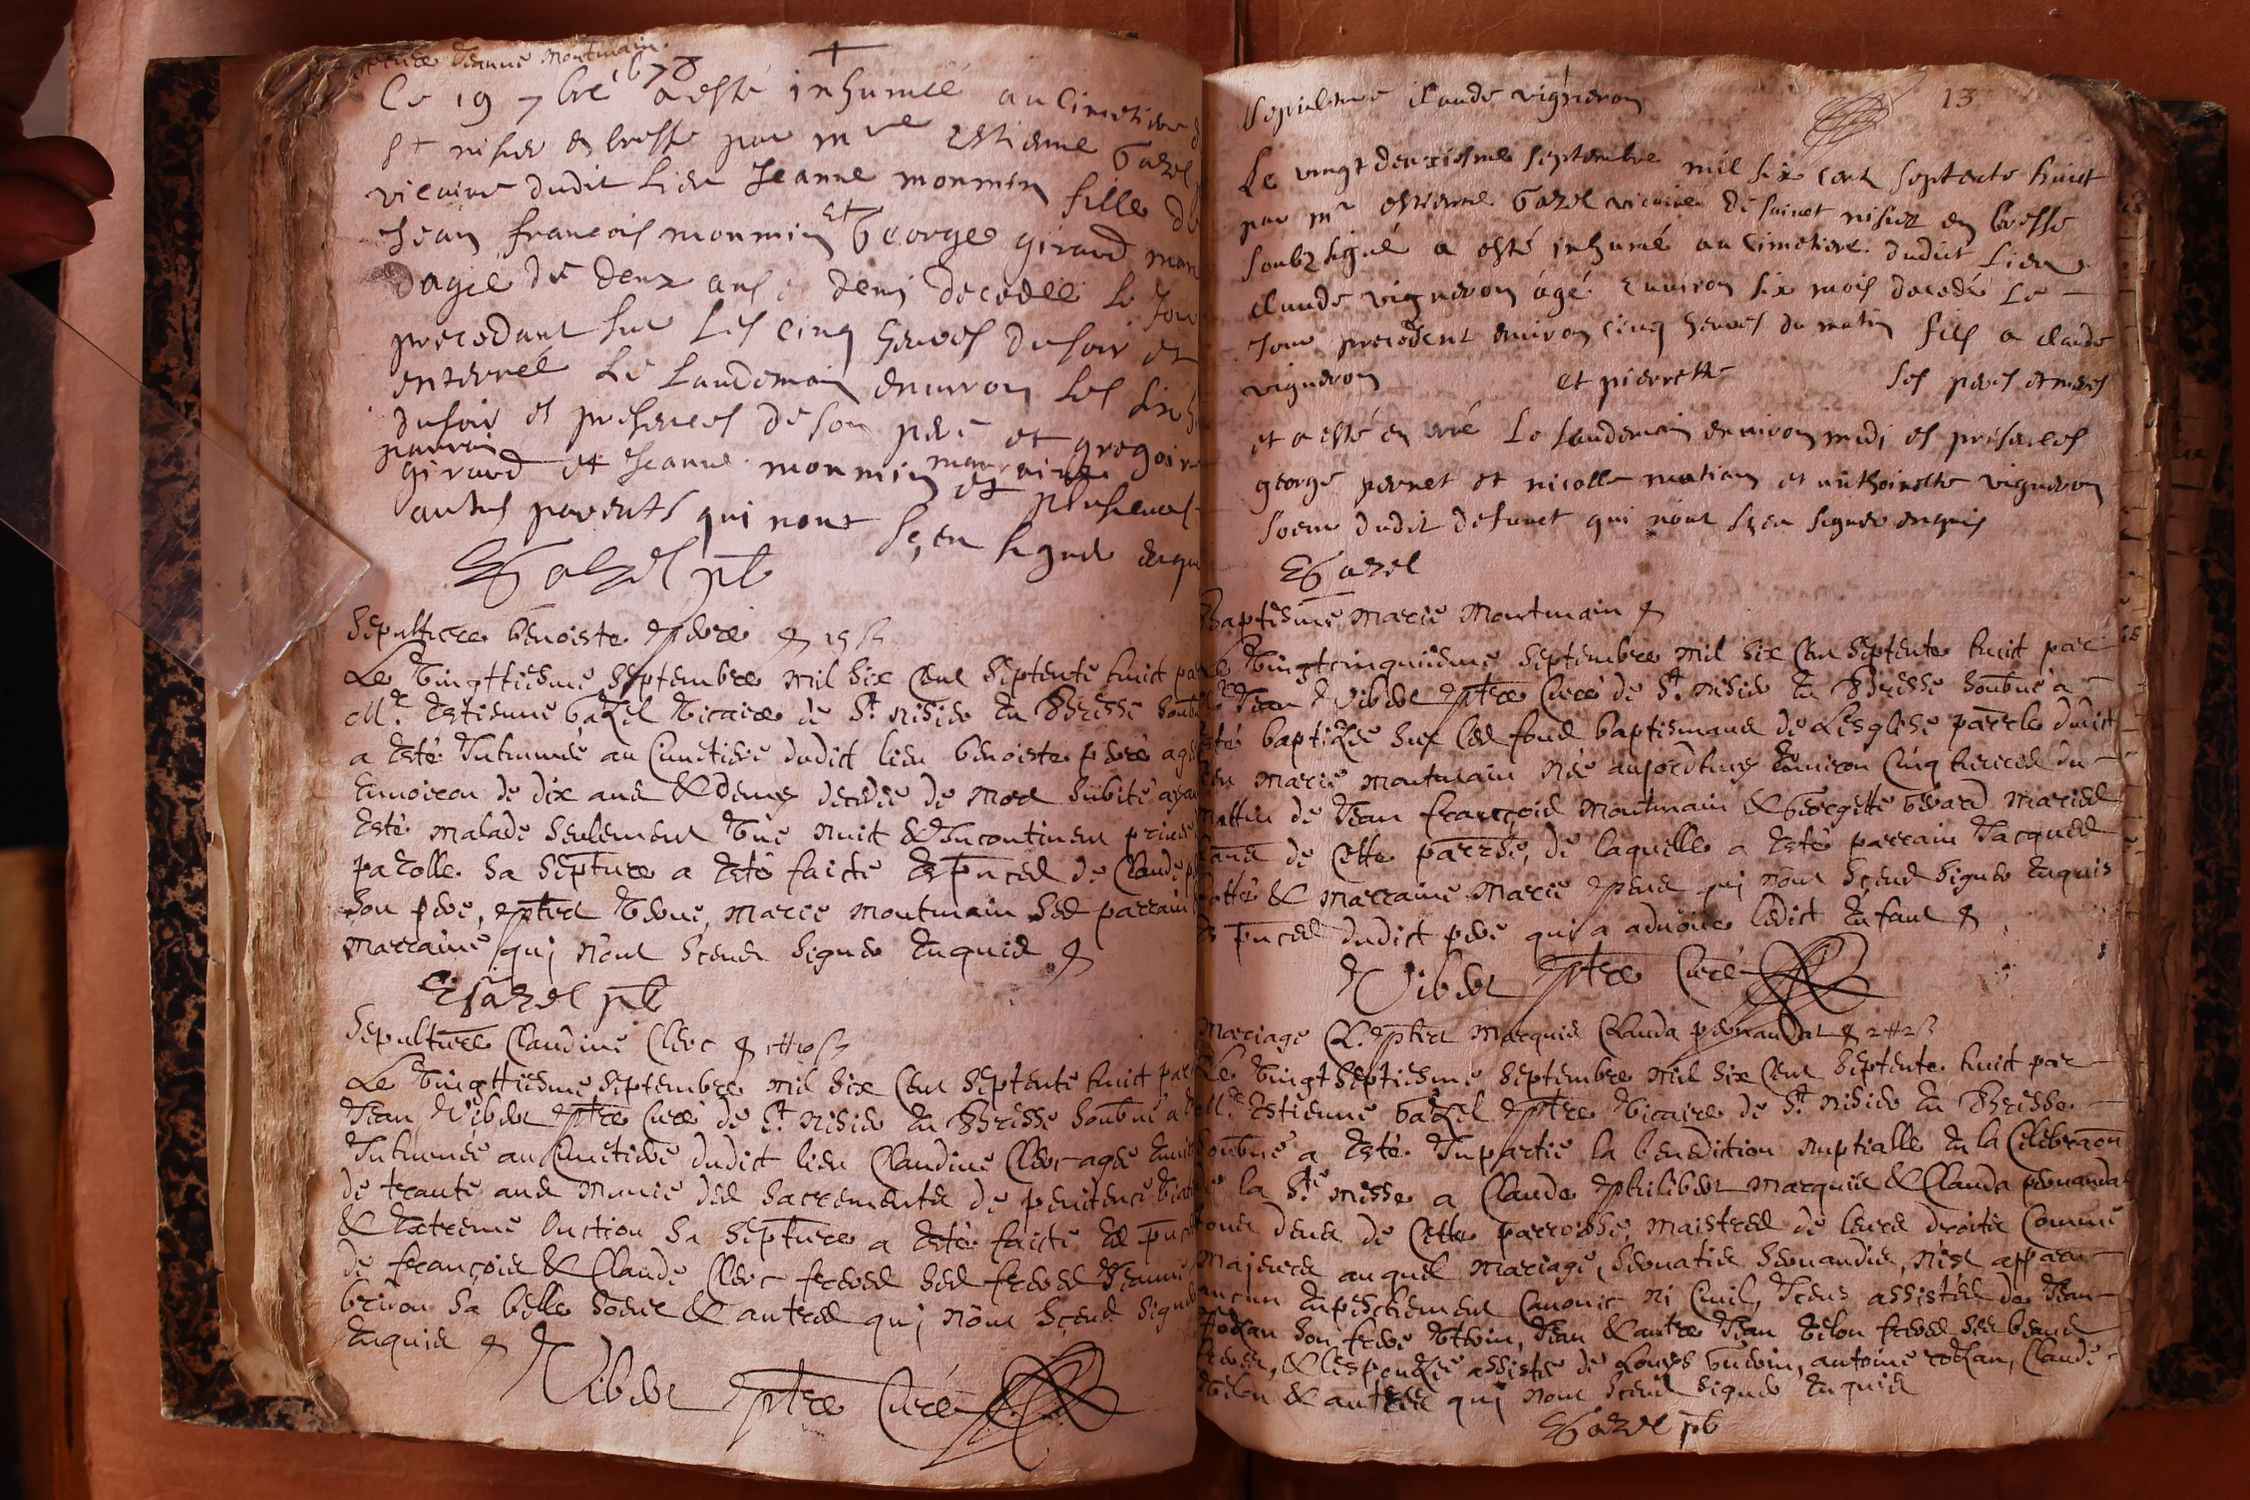 Jeanne Montmain
Le 19 7bre 678 a esté inhumée au Cimetiere
St nisier en bresse par mre Estienne Gazel
vicaire dudit Lieu Jeanne monmin fille de
Jean francois monmin et George girard
dagée de deux ans et demi decedée Le Jour
precedant sur Les cinq heures du soir et
enterrée Le Landemain environ Les six
du soir es presences de son pere et gregoire
girard parrain et Jeanne monmin marraine et plusieurs
autres parents qui nont sceu signer enquis
EGazel pb
Sepulture benoiste
Le vingttiesme Septembre mil six cent septente huict par
Mre Estienne Gazel vicaire de St Nisier en Bresse soubné
a esté Inhumée au Cimetiere dudict lieu benoiste
Environ de dix ans & demy decedée de mort subite ayant
Esté malade seulement une nuit & Incontinent
parolle sa septure a esté faicte Es pnces de Claude
son pere, marie montmain ses parrain
marraine qui nont sceuz signer Enquis
EGazel pb
Sepulture Claudine Clerc
Le vingttiesme Septembre mil six cent septente huict par
Jean Vibert ptre Curé de St Nisier en Bresse soubné a
Inhumée au Cimetiere dudict lieu Claudine Clerc agée
de trante ans munie des sacrements de penitence
& Extreme Onction sa septure a esté faicte Es
de françois & Claude Clerc freres ses freres Jeanne
sa belle soeur & autres qui nont sceus signer
Enquis
Vibert ptre Curé
13
Sepulture Claude vigneron
Le vingt deuxiesme septembre mil six cent septente huict
par mr estienne Gazel vicaire de sainct nisier en bresse
soubzsigné a esté inhumé au Cimetiere dudict Lieu
Claude vigneron agé Environ six mois decedé Le
Jour precedent environ cinq heures du matin fils a claude
vigneron et pierrette ses peres et meres
et a esté en Le Landemain environ midi es presences
george pernet et nicolle et anthoinette vigneron
soeur dudit defunct qui nont sceu signer enquis
EGazel
Baptesme Marie Montmain
Le vingtcinquiesme Septembre mil six cent septente huict par
Jean Vibert ptre Curé de St Nisier en Bresse soubné a
esté baptizée sur les fonds baptismaux de Lesglise parrle dudict
lieu marie montmain née aujourdhuy Environ Cinq heures du
mattin de Jean françois Montmain & Georgette Girard mariés
de cette parrosse, de laquelle a esté parrain Jacques
& marraine Marie qui nont sceus signer Enquis
pnces dudict pere qui a advoué ledict Enfant
Vibert ptre Curé
Mariage Cl. philibert Marquis Clauda
Le vingt septiesme Septembre mil six cent septente huict par
Mre Estienne Gazel ptre vicaire de St Nisier en Bresse
soubné a esté Inpartie la benediction nuptialle En la Celebraon
de la Ste Messe a Claude philibert Marquis & Clauda
tous deux de cette parroisse, maistres de leurs droits Comme
majeurs auquel mariage, servatis servandis, nest apparu
aucun Empeschement Canonic ni Civil, Iceux assistés de Jean
son frere Jean & autre Jean freres ses beaux
freres, & lespouzée assistée de Louys antoine Claude
& autres qui nont sceus signer Enquis
EGazel pb